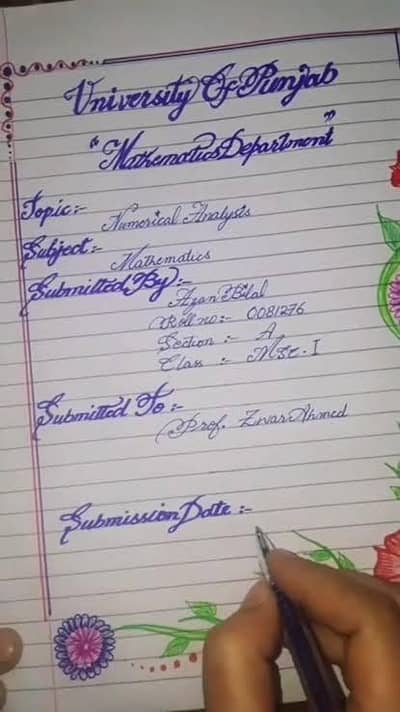 University Of Punjab
"Mathematics Department"
Topic:- Numerical Analysis
Subject:- Mathematics
Submitted By:- Azan Bilal
Roll no:- 0081276
Section :- A
Class :- MSC-I
Submitted To:- Prof. Zwar Ahmed
Submission Date :-